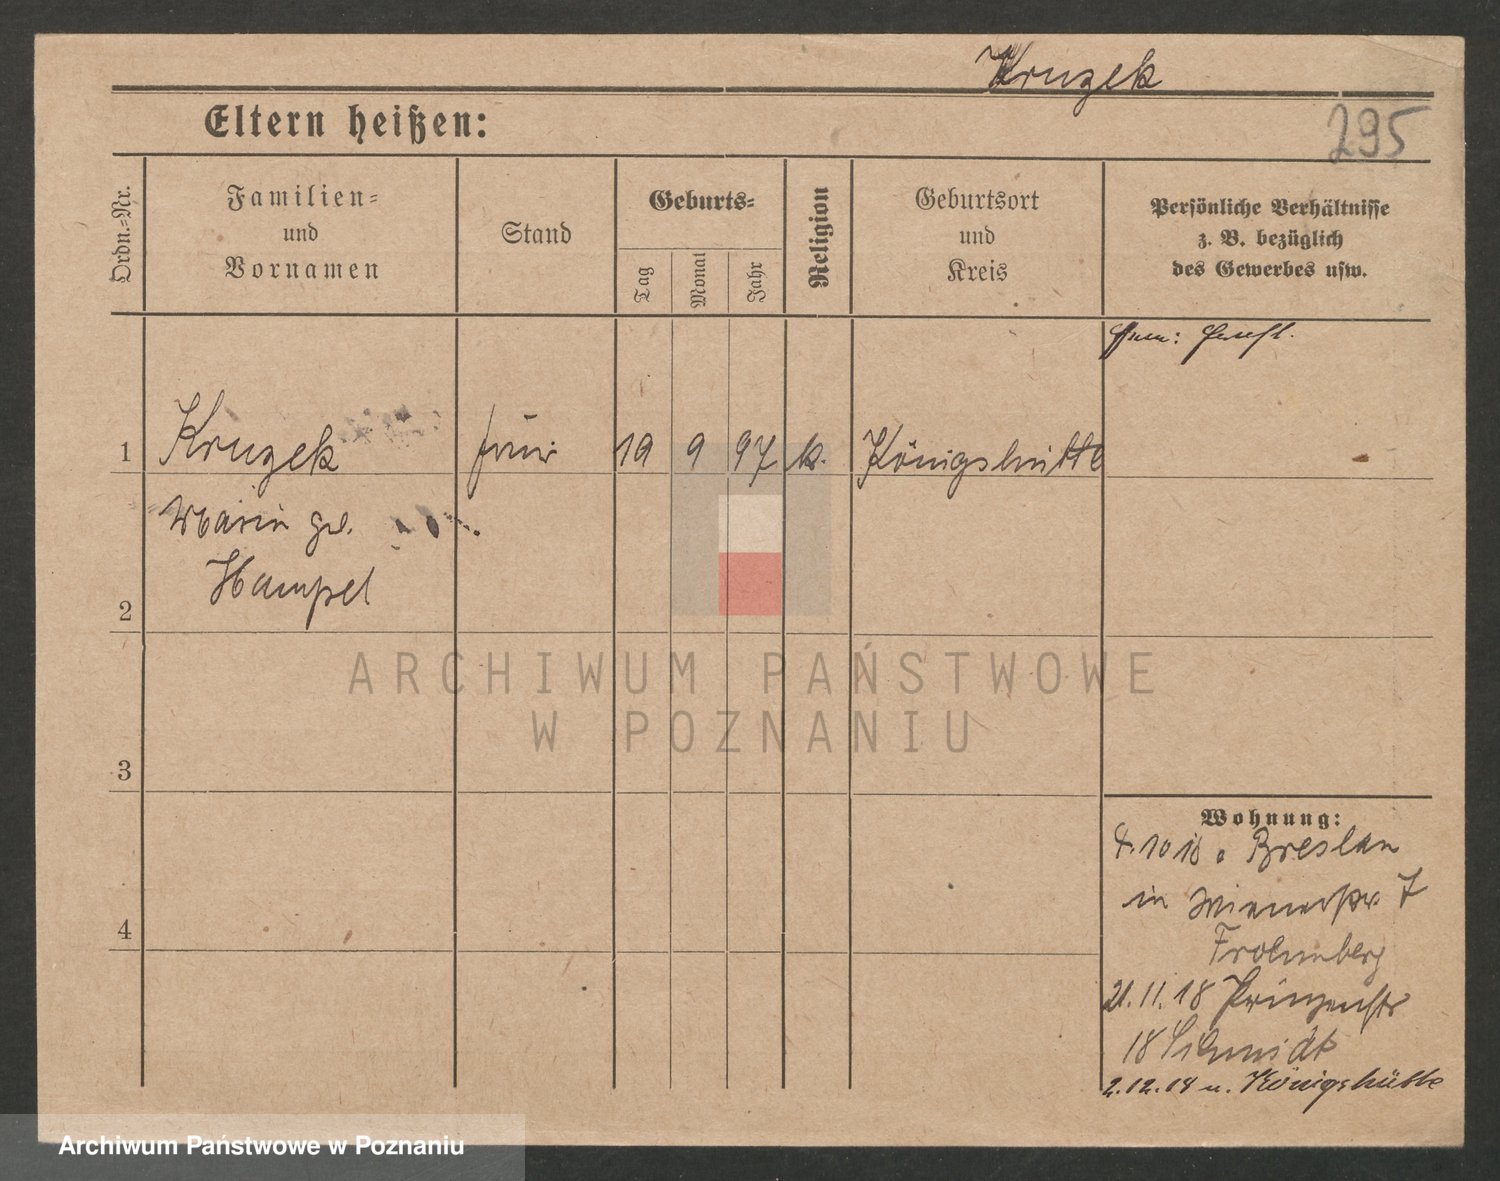 Kruzek
Eltern heißen:
295
Ordn.-Nr.
Familien-
und
Vornamen
Stand
Geburts-
Tag
Monat
Jahr
Religion
Geburtsort
und
Kreis
Persönliche Verhältnisse
z. B. bezüglich
des Gewerbes usw.
1
Kruzek
frau
19
9
97
k.
Königshütte
Maria
Hampel
2
3
4
Wohnung:
4.10 18 Breslau
in Wienerstr 7
Frohmberg
21.11.18 Prinzenstr
18 Schmidt
2.12.18 n. Königshütte
ARCHIWUM PAŃSTWOWE
W POZNANIU
Archiwum Państwowe w Poznaniu